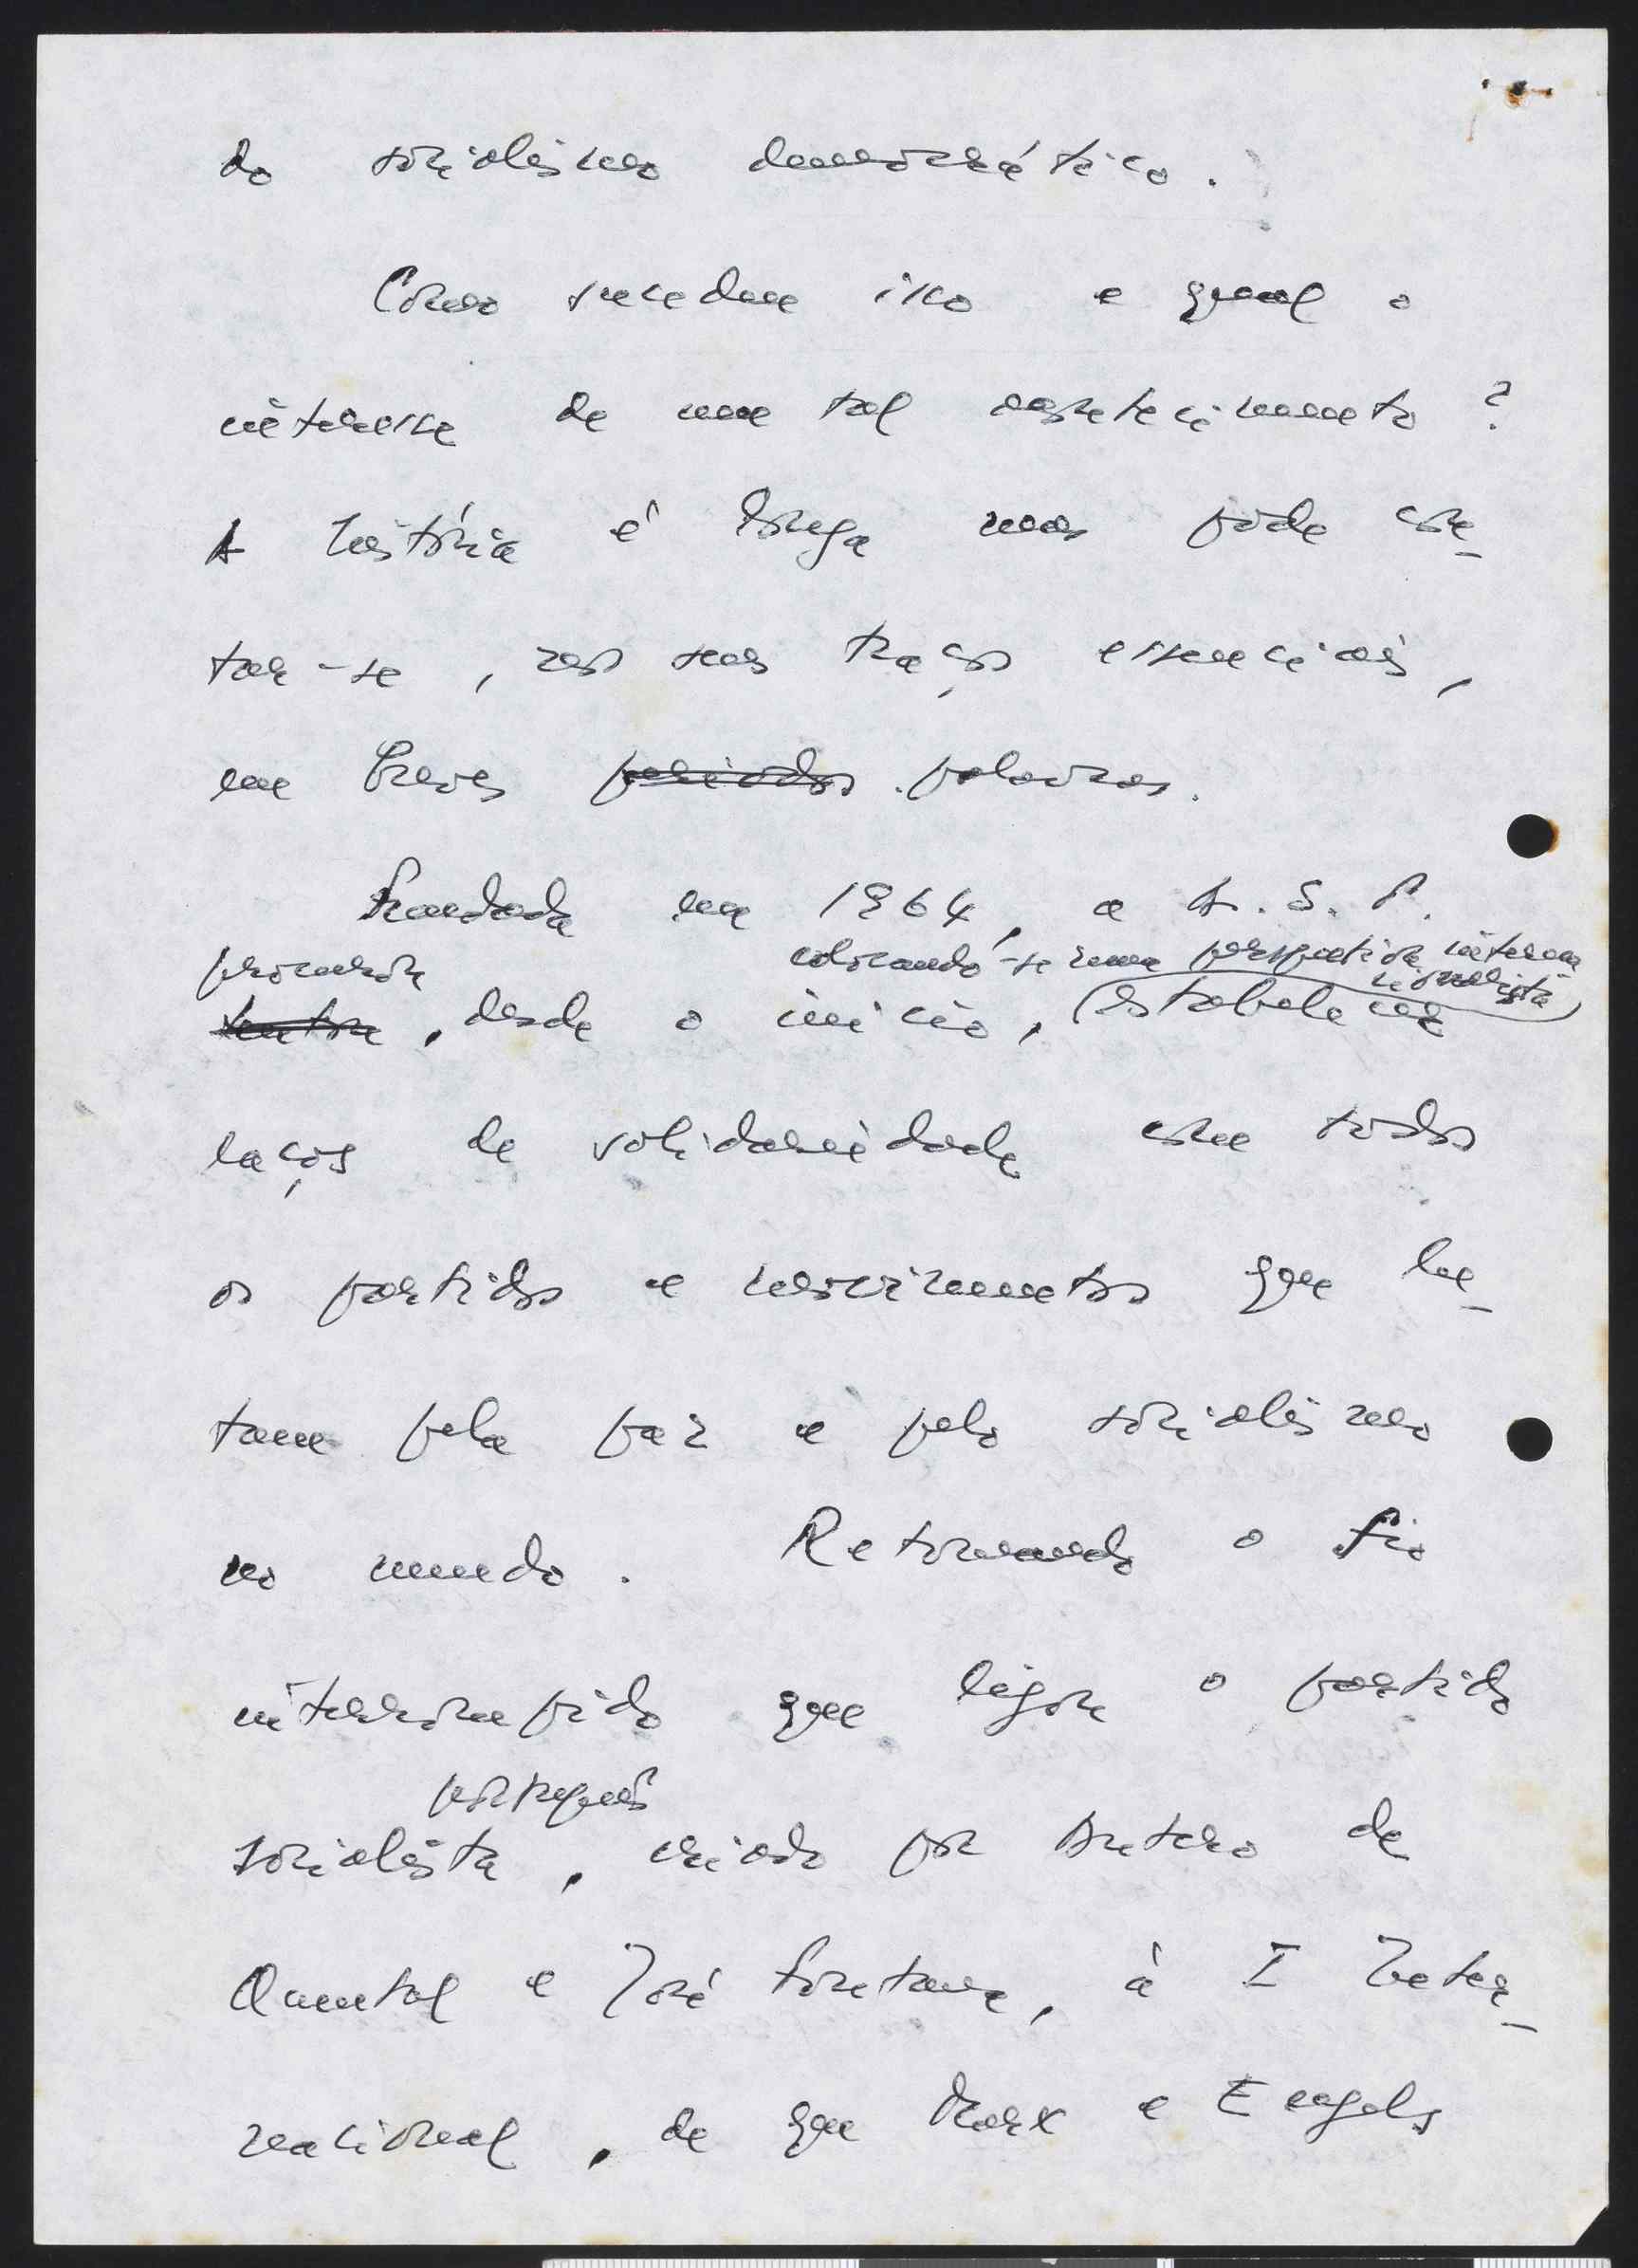 do socialismo democrático.
Como sucedeu isso e qual o
interesse de um tal acontecimento?
A história é longa mas pode con-
tar-se, nos seus traços essenciais,
em breves períodos palavras.
Fundada em 1964, a A. S. P.
procurou colocando-se numa perspectiva interna
cionalista
tentou, desde o início, estabelecer
laços de solidariedade com todos
os partidos e movimentos que lu-
tam pela paz e pelo socialismo
no mundo. Retomando o fio
interrompido que ligou o partido
português
socialista, criado por Antero de
Quental e José Fontana, à I Inter-
nacional, de que Marx e Engels